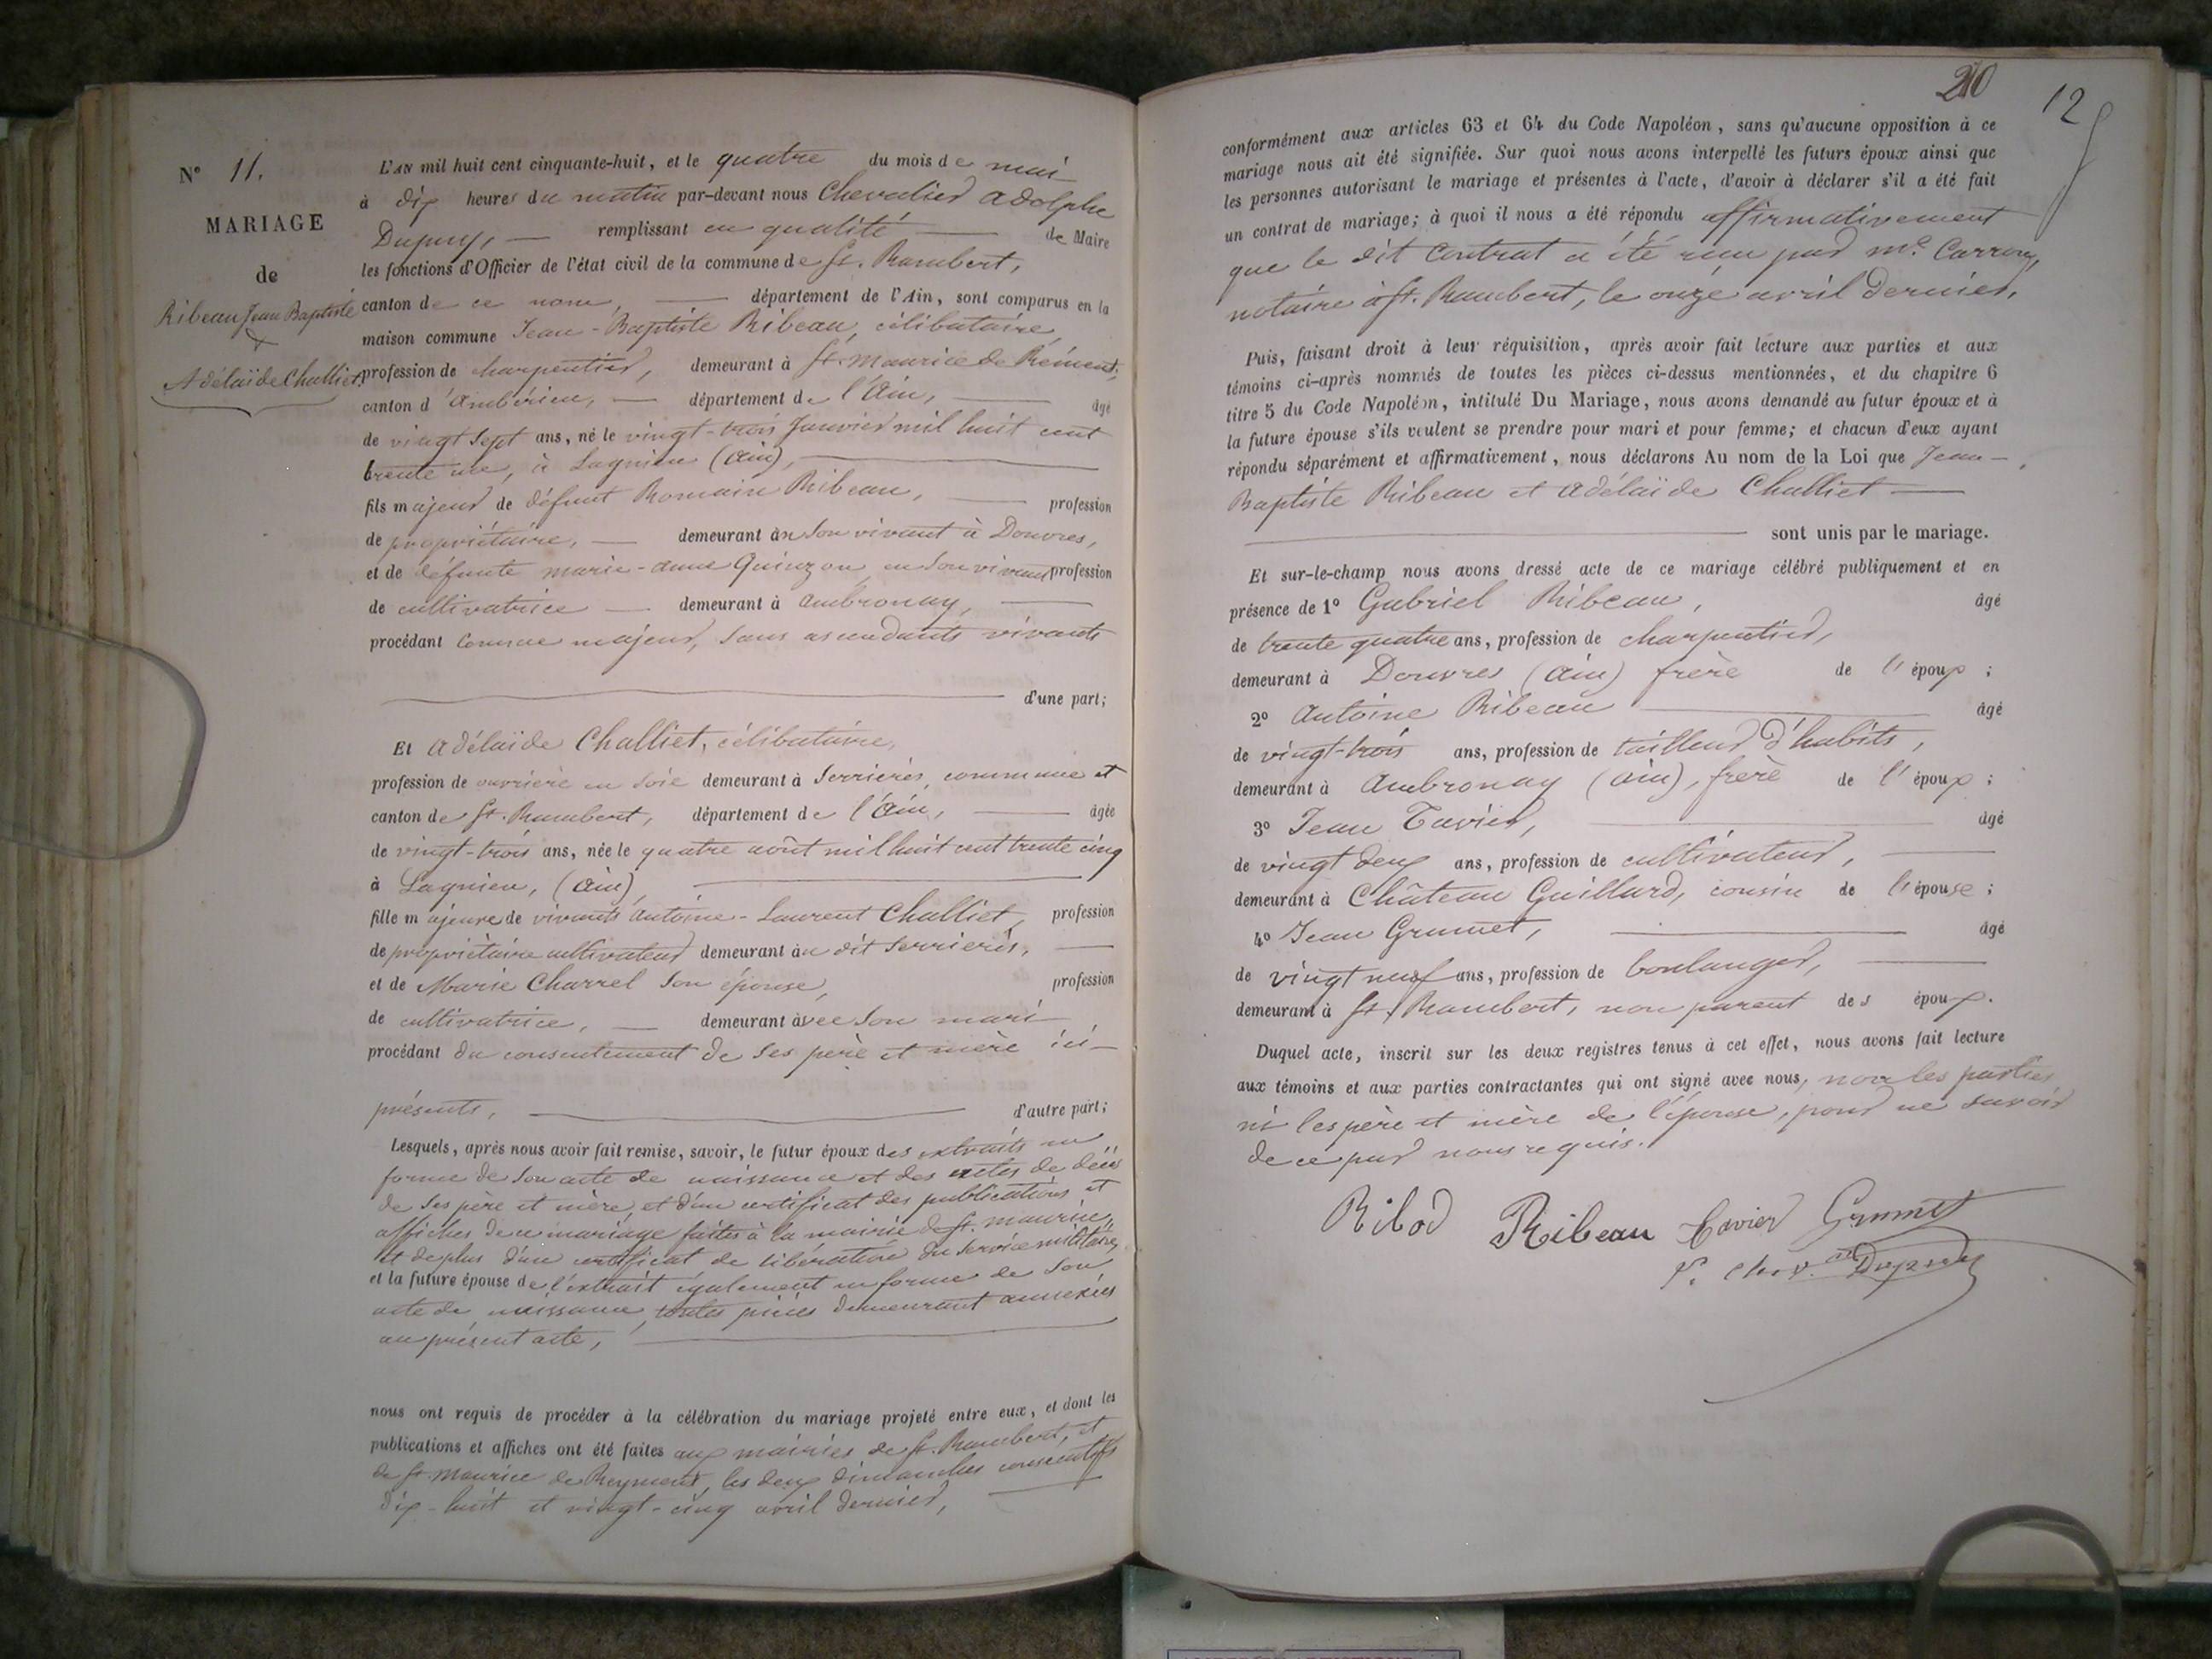 N° 11.
MARIAGE
de
Ribeau Jean Baptiste
&
Adélaïde Challiet.
L'AN mil huit cent cinquante-huit, et le quatre du mois de mai
à dix heures du matin par-devant nous Chevalier Adolphe
Dupuy, — remplissant en qualité — de Maire
les fonctions d'Officier de l'état civil de la commune de St. Rambert,
canton de ce nom, — département de l'Ain, sont comparus en la
maison commune Jean-Baptiste Ribeau, célibataire,
profession de charpentier, demeurant à St. Maurice de Rément,
canton d'Ambérieu, — département de l'Ain, — âgé
de vingt sept ans, né le vingt-trois Janvier mil huit cent
trente un, à Lagnieu (Ain), —
fils majeur de défunt Romain Ribeau, — profession
de propriétaire, — demeurant en son vivant à Douvres,
et de défunte marie-anne Quinzon, en son vivant profession
de cultivatrice — demeurant à Ambronay, —
procédant comme majeur, sans ascendants vivants
— d'une part;
Et Adélaïde Challiet, célibataire,
profession de ouvrière en soie demeurant à Serrières, commune et
canton de St. Rambert, département de l'Ain, — âgée
de vingt-trois ans, née le quatre août mil huit cent trente cinq
à Lagnieu, (Ain), —
fille majeure de vivants Antoine-Laurent Challiet, profession
de propriétaire cultivateur demeurant au dit Serrières, —
et de Marie Charrel son épouse, profession
de cultivatrice, — demeurant avec son mari
procédant du consentement de ses père et mère ici-
présents, — d'autre part;
Lesquels, après nous avoir fait remise, savoir, le futur époux des extraits en
forme de son acte de naissance et des actes de décès
de ses père et mère, et d'un certificat des publications et
affiches de ce mariage faites à la mairie de St. Maurice,
et de plus d'un certificat de libération du service militaire,
et la future épouse de l'extrait également en forme de son
acte de naissance, toutes pièces demeurant annexées
au présent acte, —
nous ont requis de procéder à la célébration du mariage projeté entre eux, et dont les
publications et affiches ont été faites aux mairies de St. Rambert, et
de St. Maurice de Reyment, les deux dimanches consécutifs
dix-huit et vingt-cinq avril dernier, —
210
12
conformément aux articles 63 et 64 du Code Napoléon, sans qu'aucune opposition à ce
mariage nous ait été signifiée. Sur quoi nous avons interpellé les futurs époux ainsi que
les personnes autorisant le mariage et présentes à l'acte, d'avoir à déclarer s'il a été fait
un contrat de mariage; à quoi il nous a été répondu affirmativement
que le dit contrat a été reçu par Me. Carrony,
notaire à St. Rambert, le onze avril dernier.
Puis, faisant droit à leur réquisition, après avoir fait lecture aux parties et aux
témoins ci-après nommés de toutes les pièces ci-dessus mentionnées, et du chapitre 6
titre 5 du Code Napoléon, intitulé Du Mariage, nous avons demandé au futur époux et à
la future épouse s'ils veulent se prendre pour mari et pour femme; et chacun d'eux ayant
répondu séparément et affirmativement, nous déclarons Au nom de la Loi que Jean-
Baptiste Ribeau et Adélaïde Challiet —
— sont unis par le mariage.
Et sur-le-champ nous avons dressé acte de ce mariage célébré publiquement et en
présence de 1° Gabriel Ribeau, âgé
de trente quatre ans, profession de charpentier,
demeurant à Douvres (Ain) frère de l'époux;
2° Antoine Ribeau — âgé
de vingt-trois ans, profession de tailleur d'habits,
demeurant à Ambronay (Ain), frère de l'époux;
3° Jean Tavier, — âgé
de vingt deux ans, profession de cultivateur, —
demeurant à Château Gaillard, cousin de l'épouse;
4° Jean Grumet, — âgé
de vingt neuf ans, profession de boulanger, —
demeurant à St. Rambert, non parent des époux.
Duquel acte, inscrit sur les deux registres tenus à cet effet, nous avons fait lecture
aux témoins et aux parties contractantes qui ont signé avec nous, non les parties
ni les père et mère de l'épouse, pour ne savoir
de ce par nous requis.
Ribod Ribeau Tavier Grumet
Dupuy